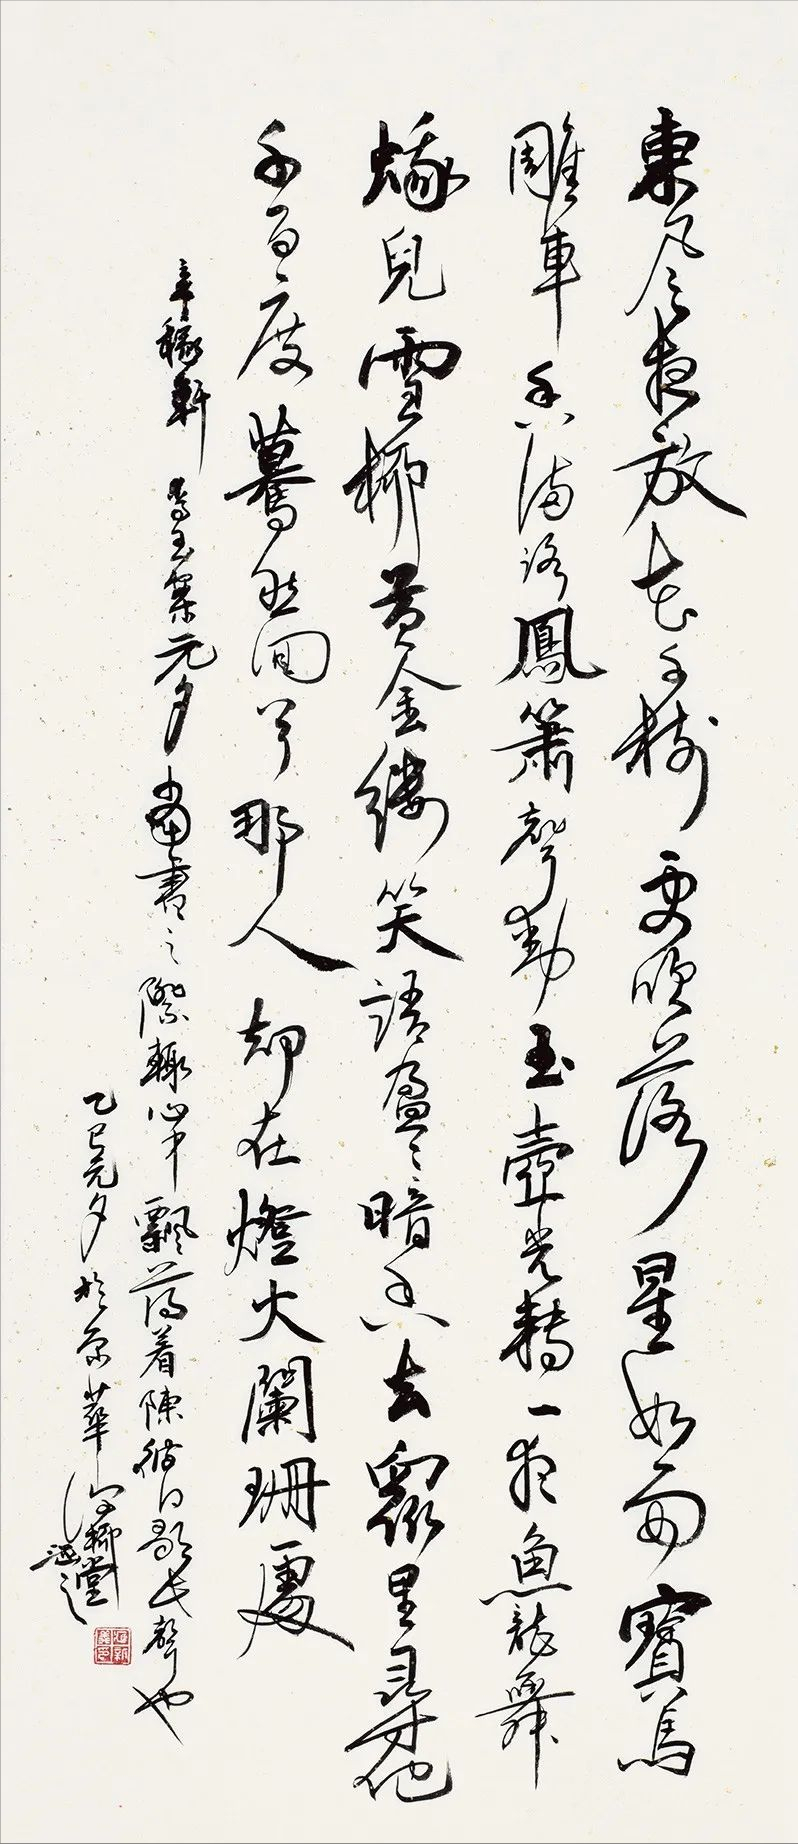 東風夜放花千樹更吹落星如雨寶馬
雕車香滿路鳳簫聲動玉壺光轉一夜魚龍舞
蛾兒雪柳黃金縷笑語盈〻暗香去衆里尋他
千百度驀然回首那人却在燈火闌珊處
辛稼軒青玉案元夕書之際輒心中飄蕩着陳彼日歌之聲也
乙巳元夕於京華深柳堂